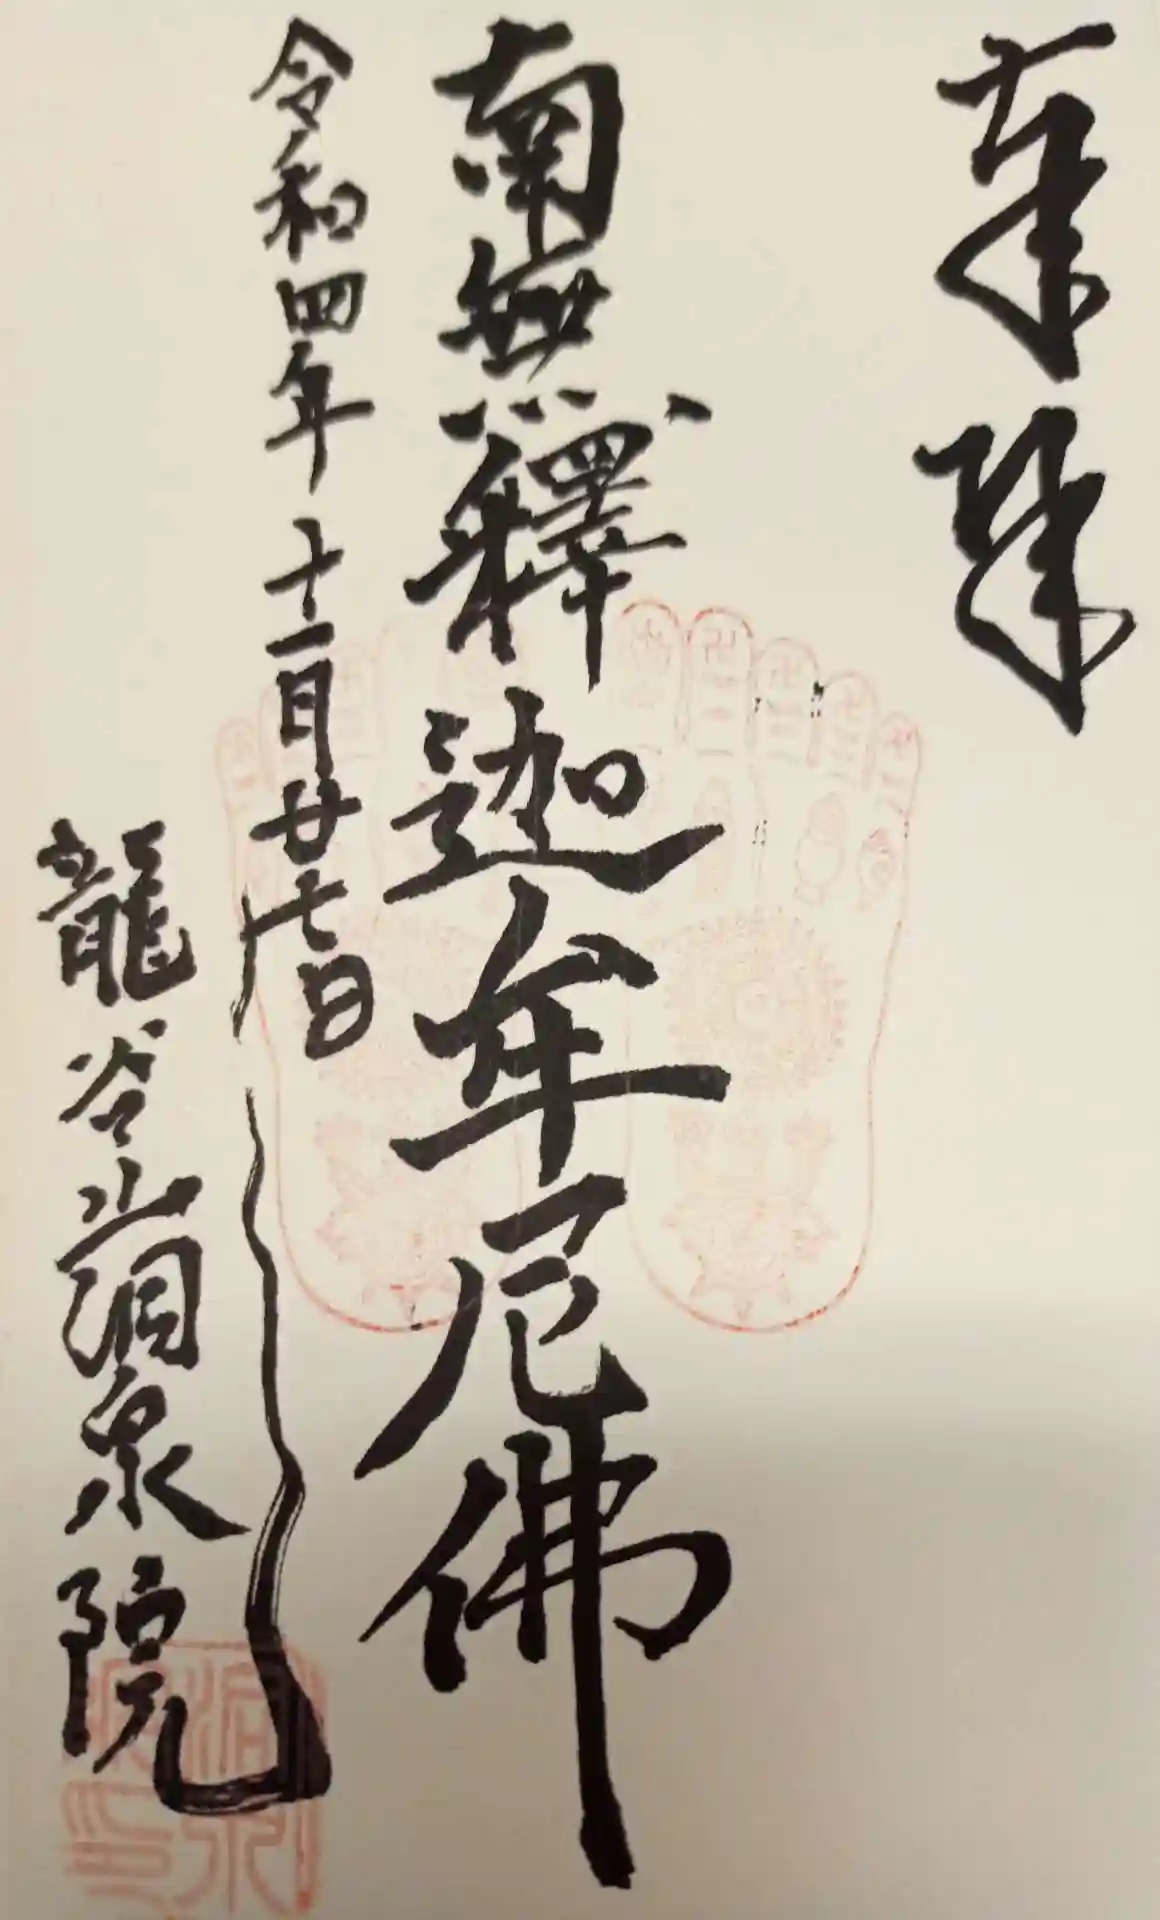 奉拝
南無釋迦牟尼佛
令和四年十一月廿七日
龍谷山洞泉院